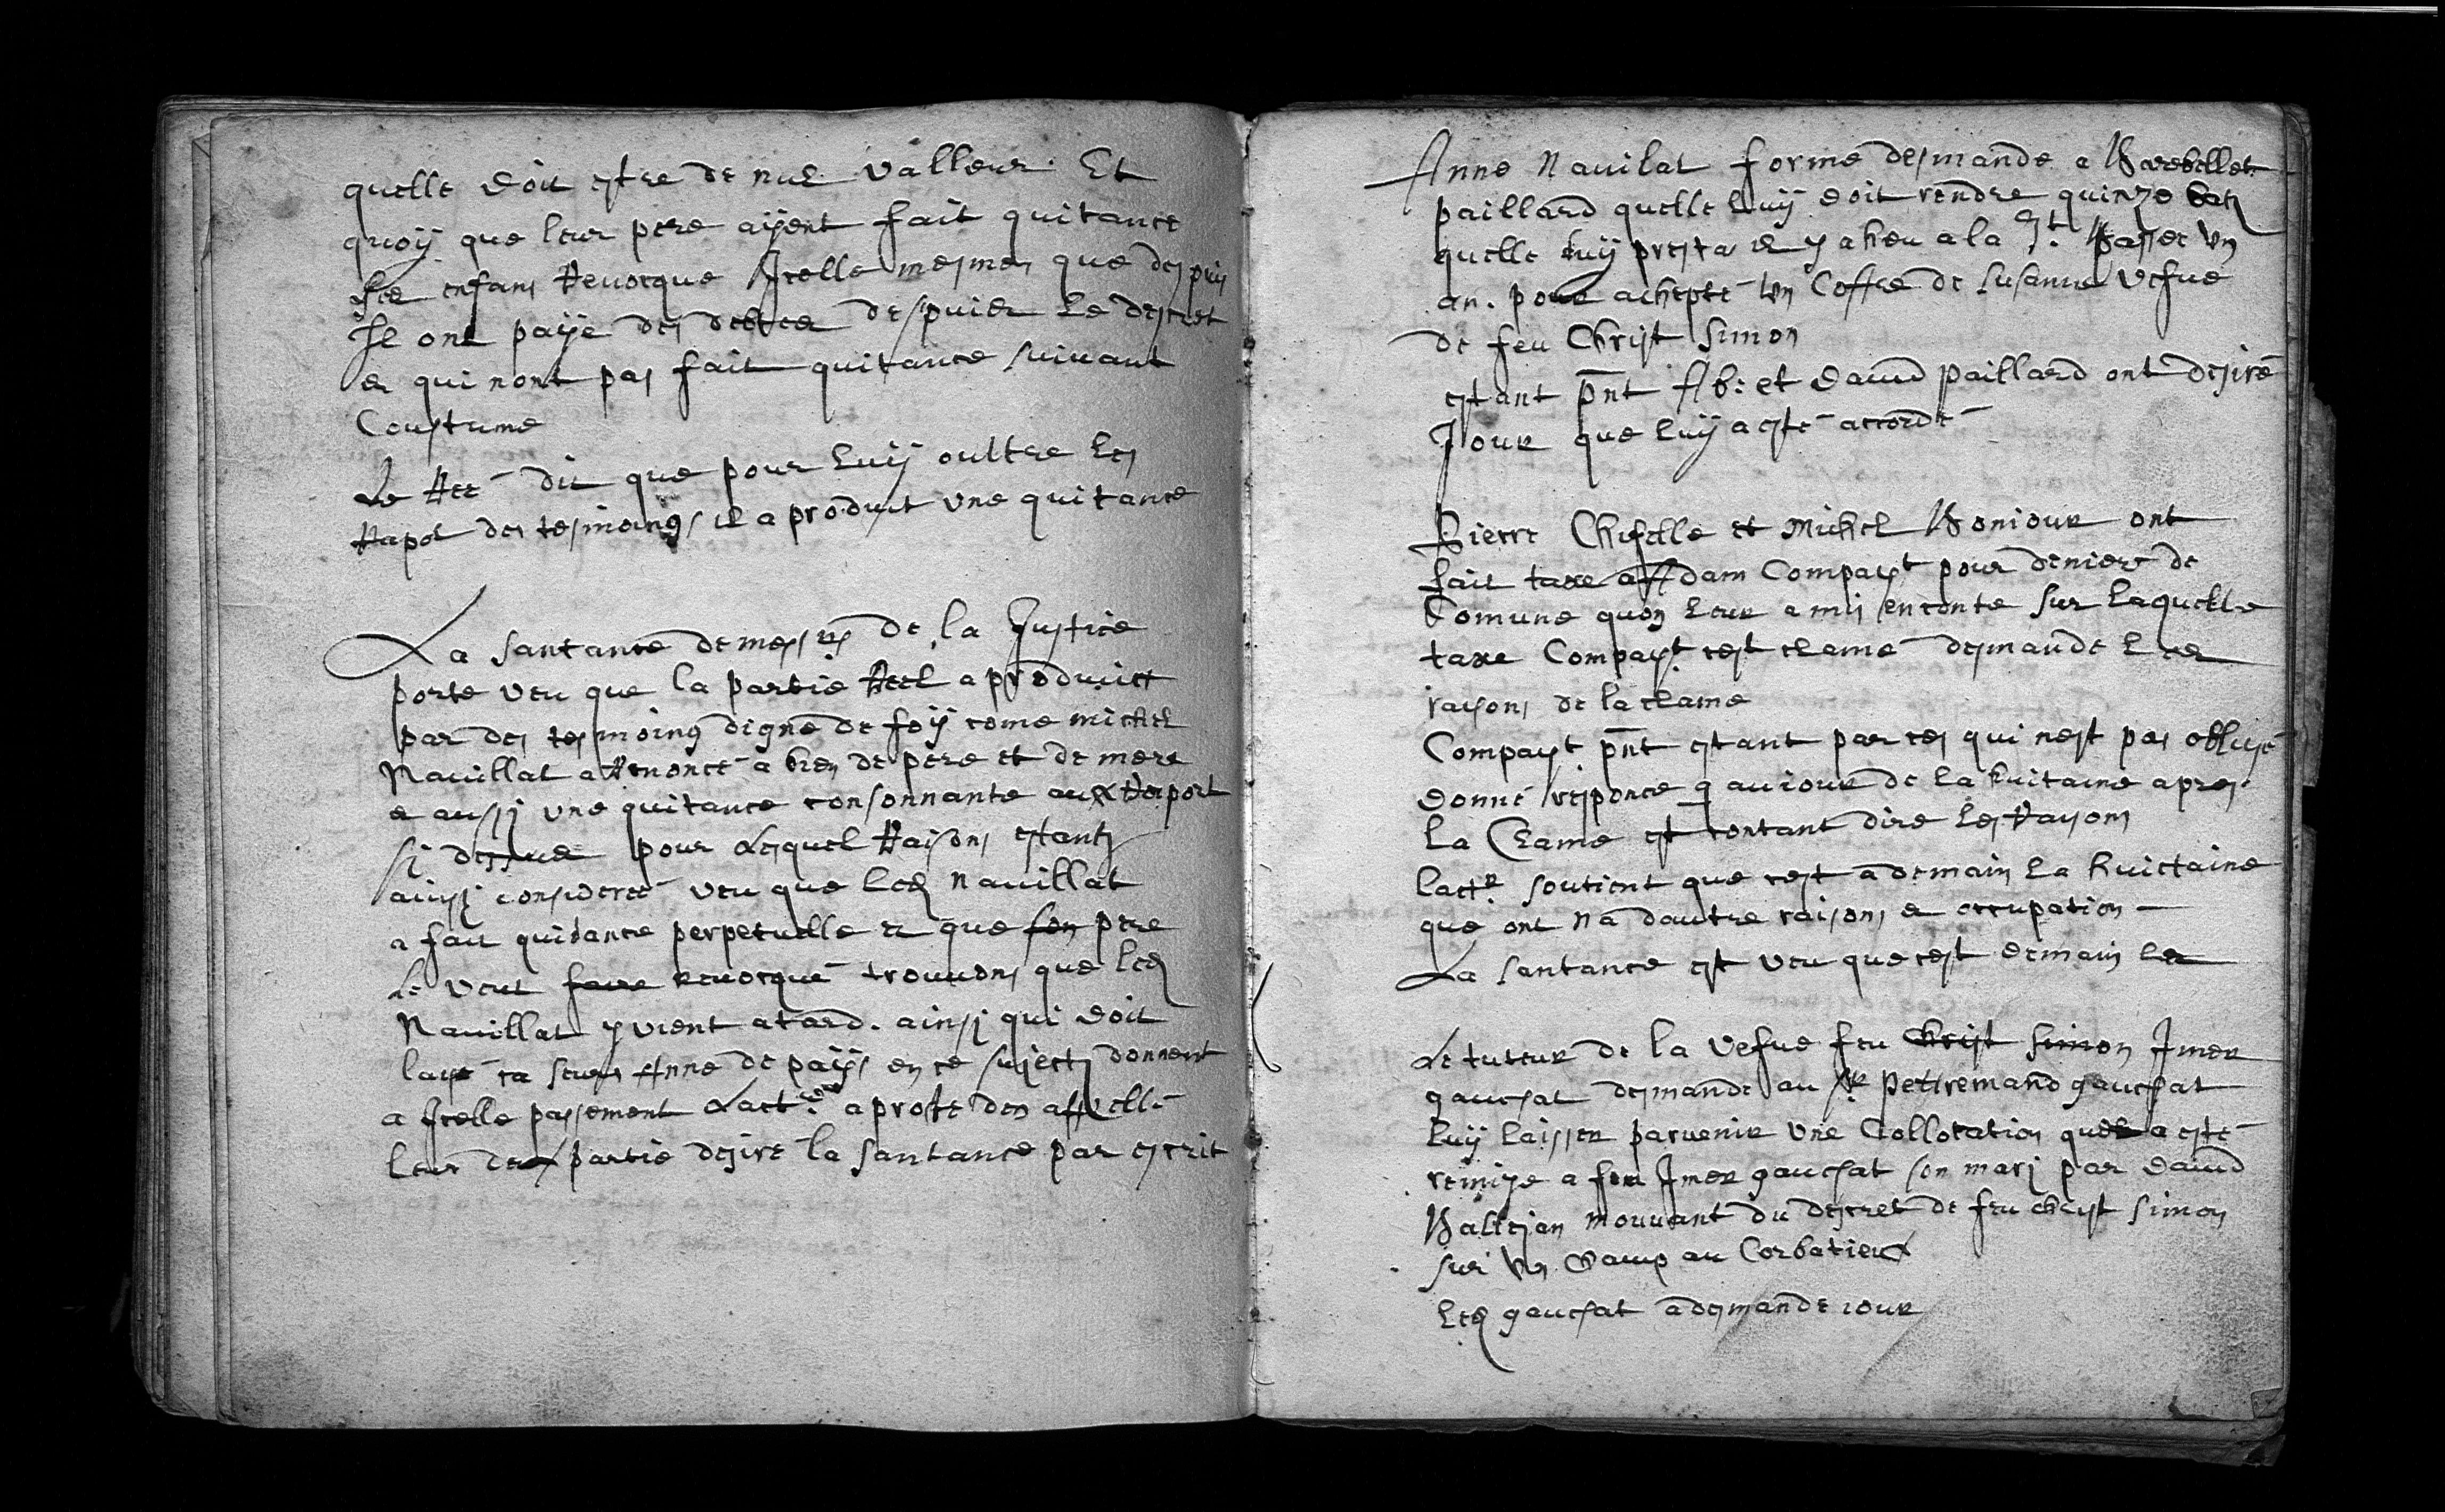 quelle doit estre de nul valleur. Et
quoÿ que leur pere aÿent fait quitance
les enfans revocque Jcelle mesmes que despuis
Jl ont paÿe des debtes despuis le decret
et qui nont pas fait quitance suivant
Coustume
Le Rée dit que pour luÿ oultre les
Rapor des tesmoings il a produit une quitance
La santance de mess rs de la Justice
porte veu que la partie Réel a produict
par des tesmoing digne de foÿ come michel
Navillat a Renoncé a bien de pere et de mere
et aussj une quitance consonnante aux Raport
sj dessus pour lesquel Raisons estant
ainsj consideré veu que led Navillat
a fait quidance perpetuelle et que son pere
le veut faire revocqué trouvons que led
Navillat y vient a tard. ainsj qui doit
laÿe sa seur Anne de paÿs en ce sujectz donnent
a Jcelle passement Lact. a proste den appellé
leur deux partie desire la santance par escrit
Anne Navilat forme desmande a
paillard quelle luÿ doit rendre quinze batz
quelle luÿ presta il y a heu a la St. un
an. pour achepté un Coffre de Susanne vefue
de feu Christ Simon
estant pnt Ab: et David paillard ont desiré
Jour que luÿ a esté accordé
Pierre Chiffelle et Michel Boniour ont
fait taxe a Adam Compagt pour deniers de
Comune quon leur a mis en conte sur laquelle
taxe Compagt cest clamé desmande les
raisons de la clame
Compagt pnt estant par ces qui nest pas obligé
donné responce q au iour de la huitaine apres
la Clame est contant dire les Raisons
lactr. soutient que cest a demain la huictaine
que ont na dautre raisons et occupation
La santance est veu que cest demain la
Le tuteur de la vefue feu Christ Simon Jmer
gauchat desmande au Sr. petitremand gauchat
luÿ laisser parvenir une Collocation quil a esté
remise a feu Jmer gauchat son marj par David
Ballejan mouvant du decret de feu christ Simon
sur un champ au Corbatieux
led gauchat a desmandé iour